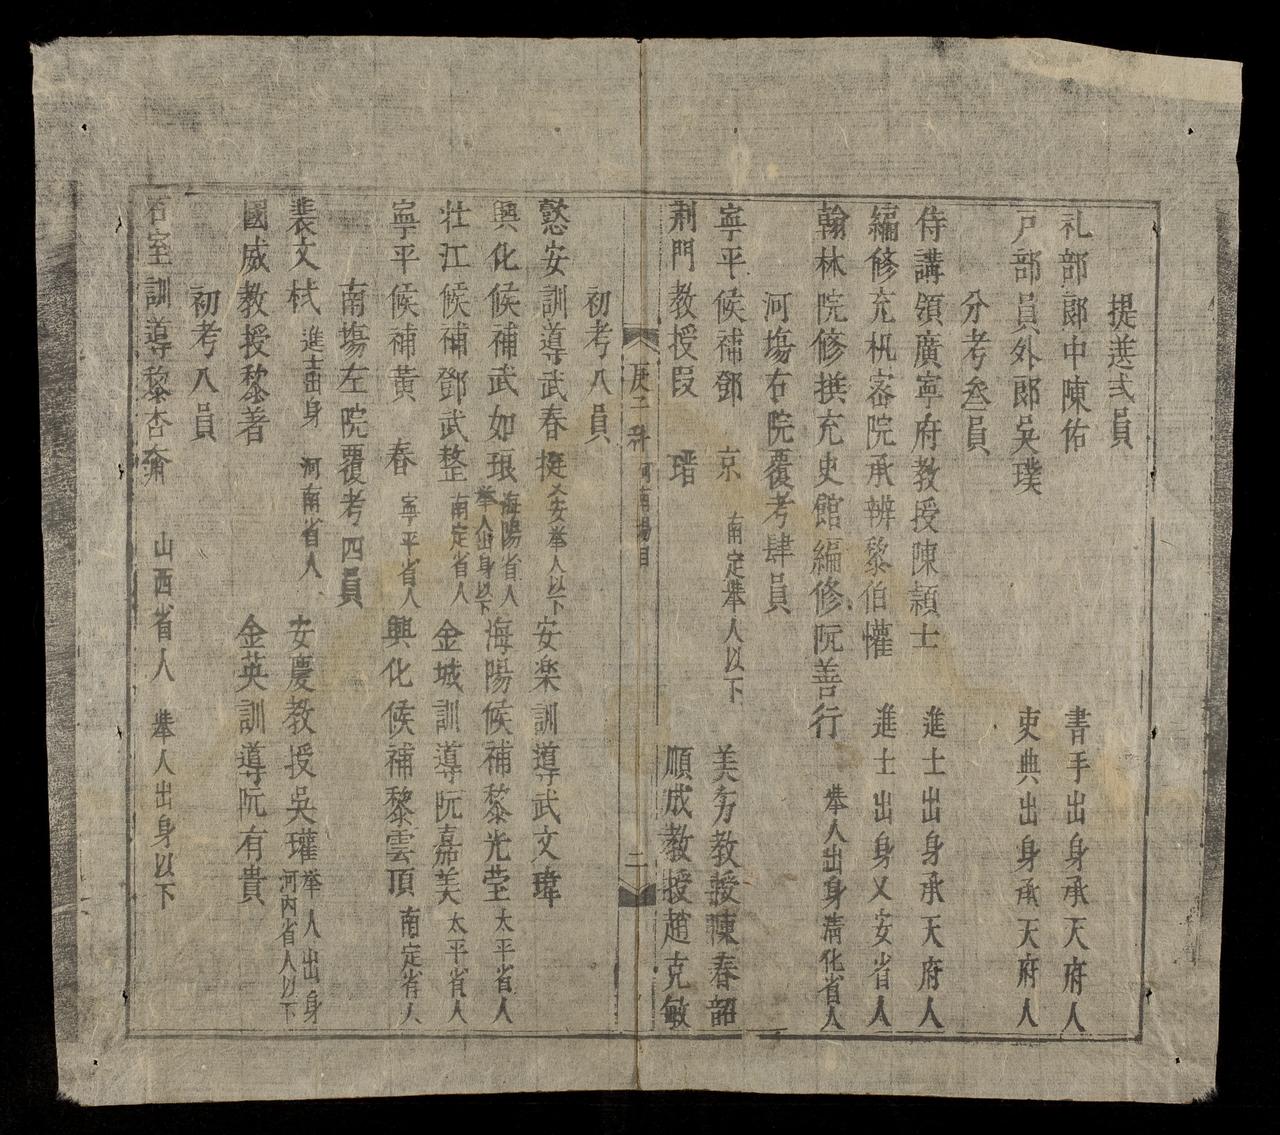 提遴弍員
礼部郎中陳佑 書手出身承天府人
戸部員外郎吳璞 吏典出身承天府人
分考叁員
侍講領廣寧府教授陳穎士 進士出身承天府人
編修充机宻院承辨黎伯懽 進士出身乂安省人
翰林院修撰充史館編修阮善行 举人出身清化省人
河塲右院覆考肆員
寧平候補鄧京 南定举人以下 美夯教授陳春韶
荆門教授段瑨 順成教授趙克敏
庚子科 河南塲目 二
初考八員
懃安訓導武春挺 乂安举人以下 安楽訓導武文瑋
興化候補武如珢 海陽省人举人出身以下 海陽候補黎光莹 太平省人
壮江候補鄧武整 南定省人 金城訓導阮嘉美 太平省人
寧平候補黄春 寧平省人 興化候補黎雲頂 南定省人
南塲左院覆考四員
裴文栻 進士出身 河南省人 安慶教授吳瓘 举人出身河内省人以下
國威教授黎著 金英訓導阮有貴
初考八員
石室訓導黎杏 山西省人 举人出身以下